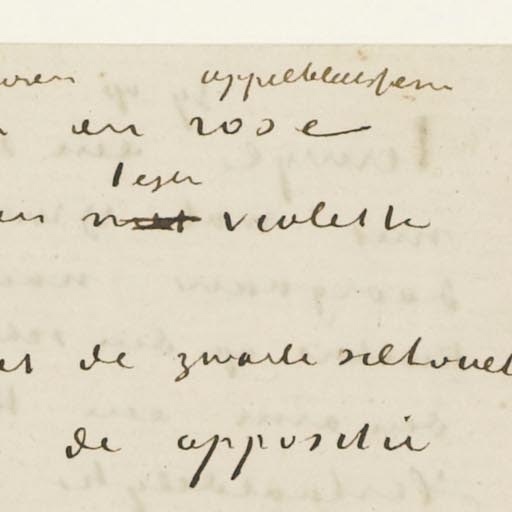 appelbloesem
en rose
tegen
met violette
de zwarte silhouet
de oppositie